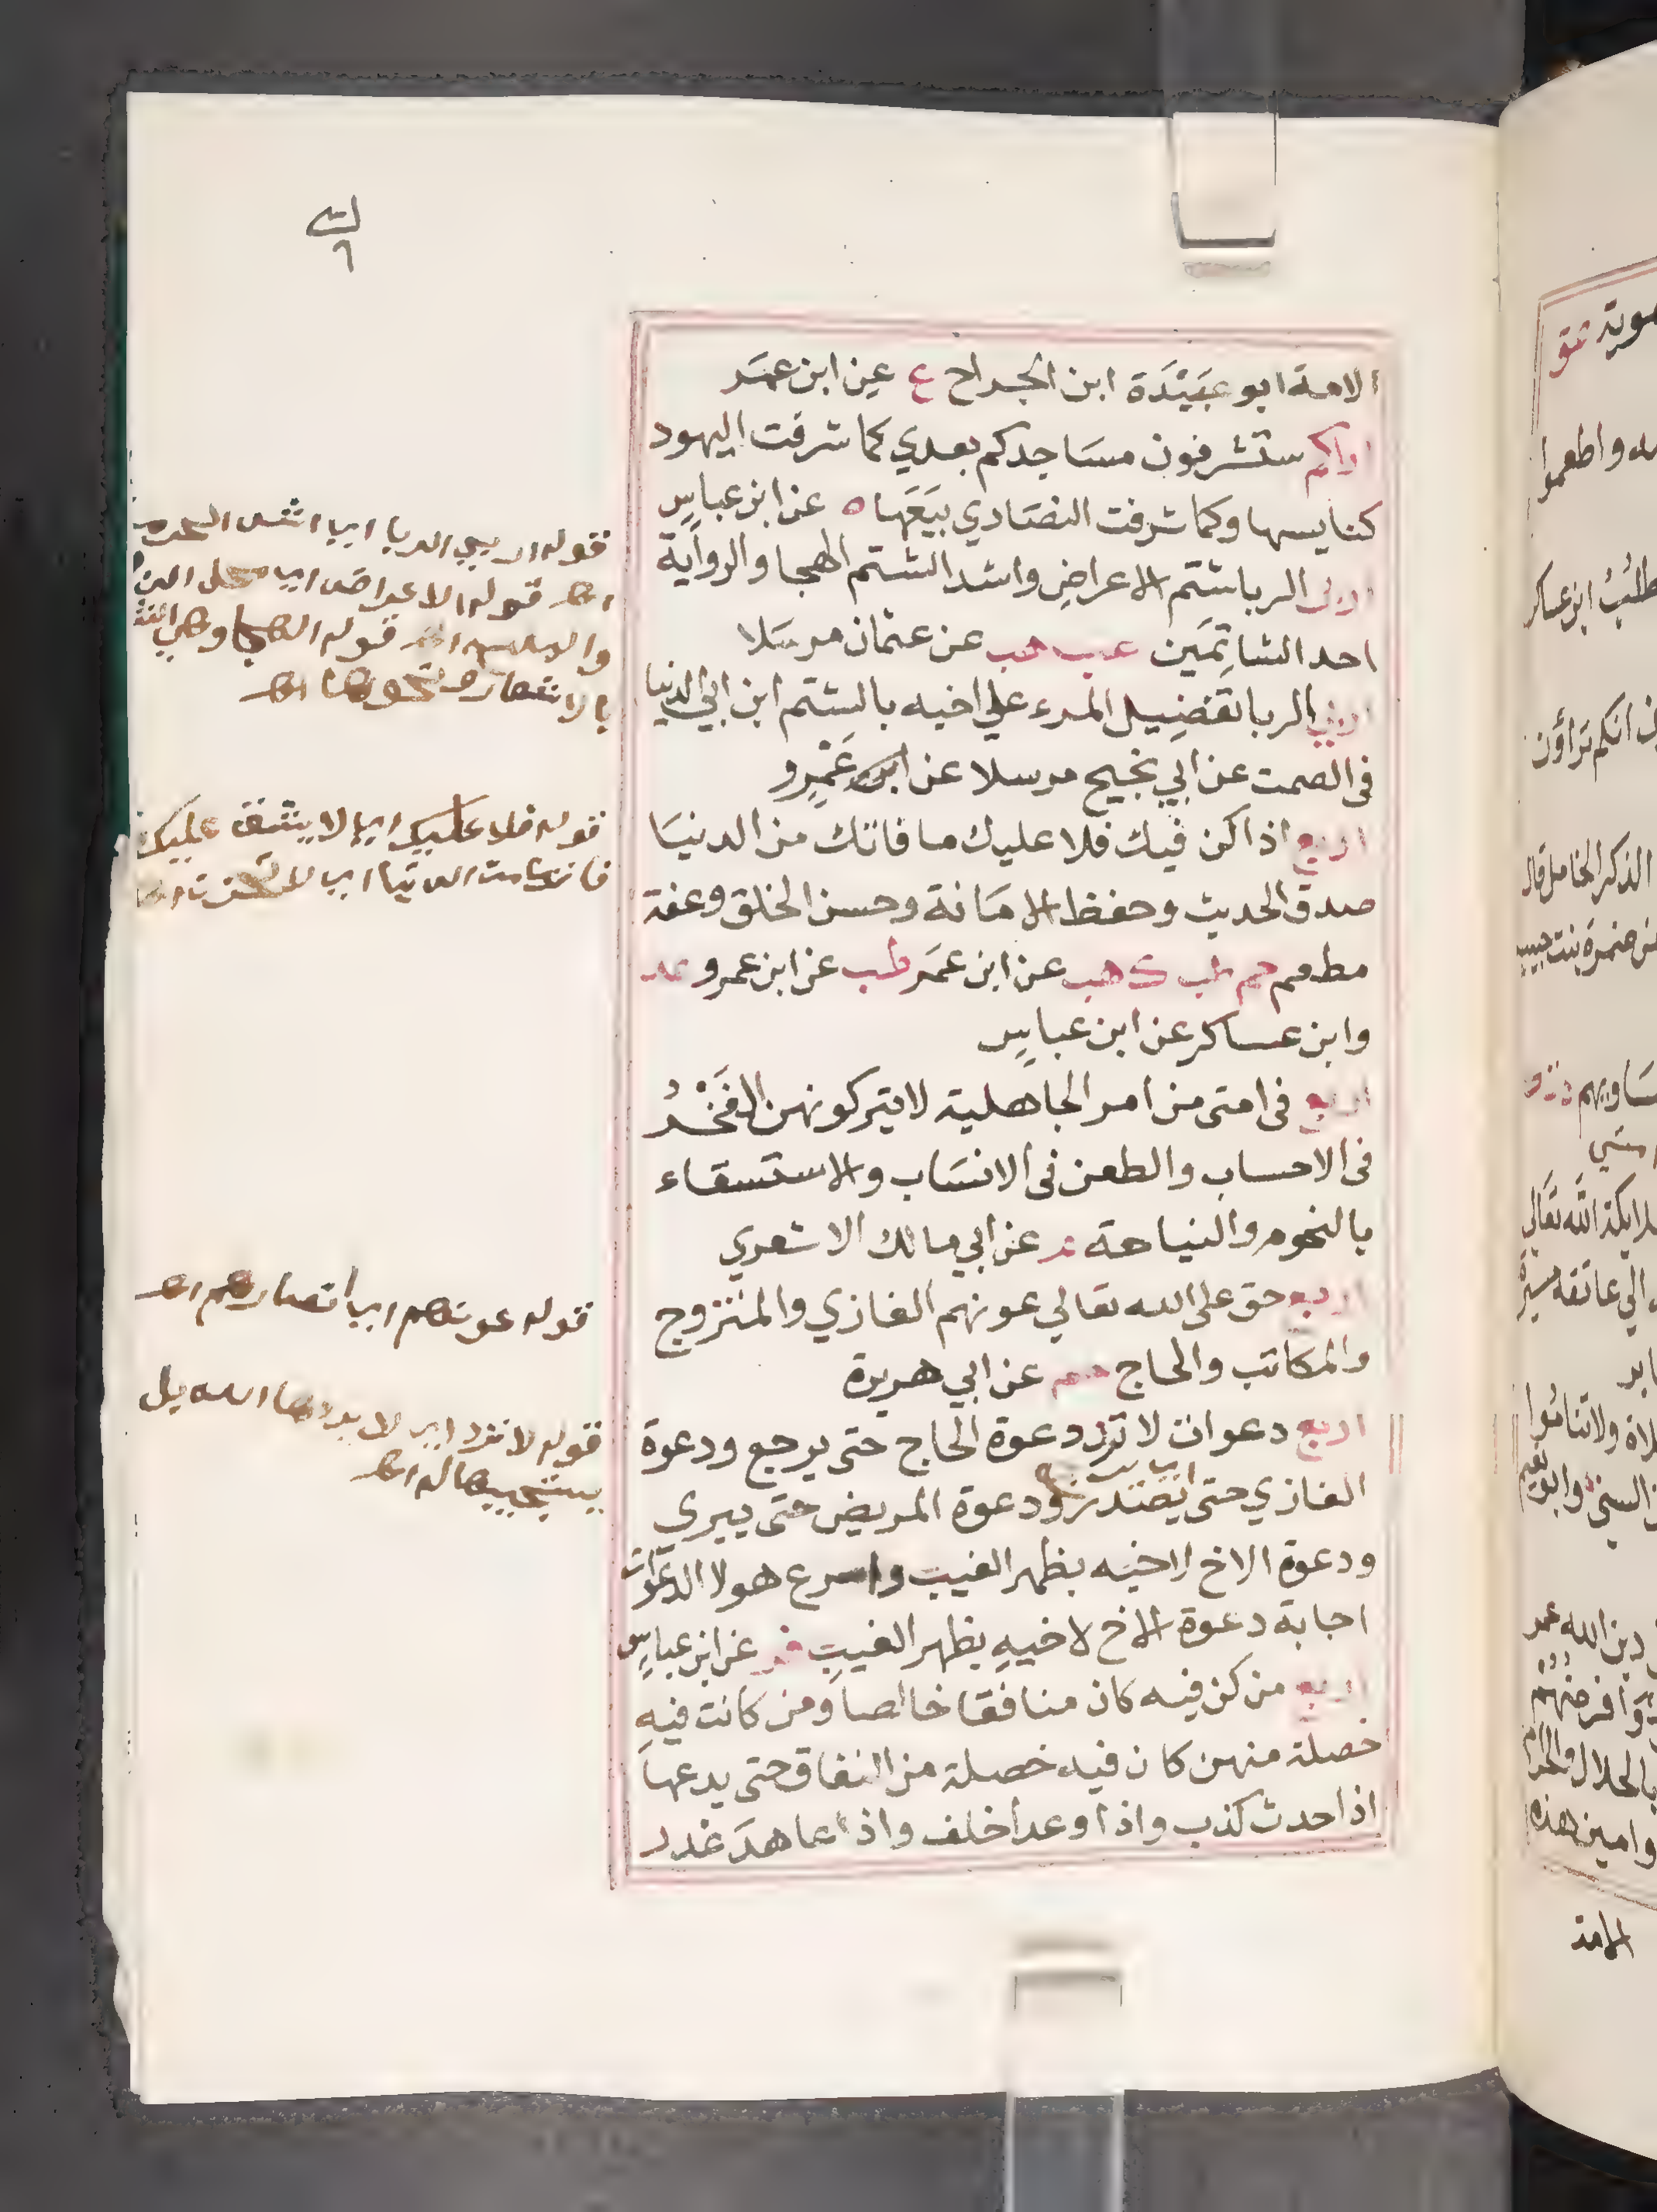 الامة ابو عبَيْدَة ابن الجراح ع عن ابن عمَر
اراكم ستشرفون مسَاجدكم بعدي كما شرفت اليهود
كنايسها وكما شرفت النصَاري بيَعَها ه عن ابن عباسٍ
اربى الربا شتم الاعراضِ واشد الشتم الهجا والرواية
احد الشاتِمَين عب هب عن عثمان مرسَلا
اربى الربا تفضِيل المرء علي اخيه بالشتم ابن ابي الدنيا
في الصمت عن ابي نجيح مرسلا عن ابن عَمْرٍو
اربع اذا كن فيك فلا عليك ما فاتك من الدنيَا
صدق الحديث وحفظ الامَانة وحسن الخلق وعفة
مطعم حم طب ك هب عن ابن عمَر طب عن ابن عمرو عد
وابن عساكر عن ابن عباسٍ
اربع في امتى من امر الجاهلية لا يتركونهن الفَخْرُ
في الاحساب والطعن في الانسَاب والاستسقاء
بالنجوم والنياحة م عن ابي مالك الاشعري
اربع حق على الله تعالي عونهم الغازي والمتزوج
والمكاتب والحاج حم عن ابي هريرة
اربع دعوات لا ترد دعوة الحاج حتى يرجع ودعوة
الغازي حتى يصدر ودعوة المريض حتى يبرى
ودعوة الاخ لاخيه بظهر الغيب واسرع هولا الدعوات
اجابة دعوة الاخ لاخيهِ بظهر الغيبِ فر عن ابن عباسٍ
اربع من كن فيه كان منافقا خالصا ومن كانت فيهِ
خصلة منهن كان فيه خصلة من النفاق حتى يدعها
اذا حدث كذب واذا وعد اخلف واذا عاهدَ غدر
قوله اربي الربا اي اشد
قوله الاعراض اي محل
قوله الهجا وهي
قوله فلا عليك اي لا يشق عليك
قوله عونهم اي انصارهم اه
قوله لا ترد اي لا يردها الله بل
يستجيبها له اه